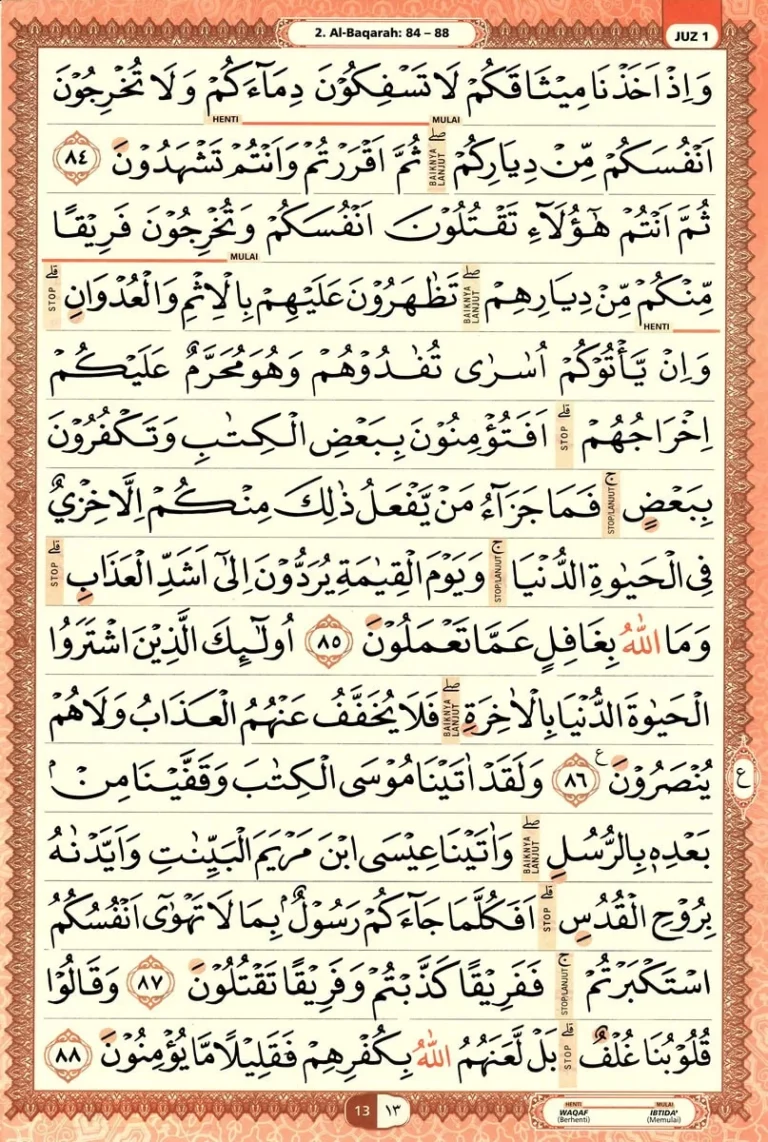 2. Al-Baqarah: 84 – 88
JUZ 1
وَاِذْ اَخَذْنَا مِيْثَاقَكُمْ لَا تَسْفِكُوْنَ دِمَاۤءَكُمْ وَلَا تُخْرِجُوْنَ
HENTI MULAI
اَنْفُسَكُمْ مِّنْ دِيَارِكُمْ ۖ BAIKNYA LANJUT ثُمَّ اَقْرَرْتُمْ وَاَنْتُمْ تَشْهَدُوْنَ ٨٤
ثُمَّ اَنْتُمْ هٰٓؤُلَاۤءِ تَقْتُلُوْنَ اَنْفُسَكُمْ وَتُخْرِجُوْنَ فَرِيْقًا
MULAI
مِّنْكُمْ مِّنْ دِيَارِهِمْ ۖ BAIKNYA LANJUT تَظٰهَرُوْنَ عَلَيْهِمْ بِالْاِثْمِ وَالْعُدْوَانِ ۗ STOP
HENTI
وَاِنْ يَّأْتُوْكُمْ اُسٰرٰى تُفٰدُوْهُمْ وَهُوَ مُحَرَّمٌ عَلَيْكُمْ
اِخْرَاجُهُمْ ۗ STOP اَفَتُؤْمِنُوْنَ بِبَعْضِ الْكِتٰبِ وَتَكْفُرُوْنَ
بِبَعْضٍ ۚ STOP/LANJUT فَمَا جَزَاۤءُ مَنْ يَّفْعَلُ ذٰلِكَ مِنْكُمْ اِلَّا خِزْيٌ
فِى الْحَيٰوةِ الدُّنْيَا ۚ STOP/LANJUT وَيَوْمَ الْقِيٰمَةِ يُرَدُّوْنَ اِلٰٓى اَشَدِّ الْعَذَابِ ۗ STOP
وَمَا اللّٰهُ بِغَافِلٍ عَمَّا تَعْمَلُوْنَ ٨٥ اُولٰۤىِٕكَ الَّذِيْنَ اشْتَرَوُا
الْحَيٰوةَ الدُّنْيَا بِالْاٰخِرَةِ ۖ BAIKNYA LANJUT فَلَا يُخَفَّفُ عَنْهُمُ الْعَذَابُ وَلَا هُمْ
يُنْصَرُوْنَ ع ٨٦ وَلَقَدْ اٰتَيْنَا مُوْسَى الْكِتٰبَ وَقَفَّيْنَا مِنْۢ
ع
بَعْدِهٖ بِالرُّسُلِ ۖ BAIKNYA LANJUT وَاٰتَيْنَا عِيْسَى ابْنَ مَرْيَمَ الْبَيِّنٰتِ وَاَيَّدْنٰهُ
بِرُوْحِ الْقُدُسِ ۗ STOP اَفَكُلَّمَا جَاۤءَكُمْ رَسُوْلٌۢ بِمَا لَا تَهْوٰٓى اَنْفُسُكُمُ
اسْتَكْبَرْتُمْ ۚ STOP/LANJUT فَفَرِيْقًا كَذَّبْتُمْ وَفَرِيْقًا تَقْتُلُوْنَ ٨٧ وَقَالُوْا
قُلُوْبُنَا غُلْفٌ ۗ STOP بَلْ لَّعَنَهُمُ اللّٰهُ بِكُفْرِهِمْ فَقَلِيْلًا مَّا يُؤْمِنُوْنَ ٨٨
13 ١٣
HENTI MULAI
WAQAF IBTIDA'
(Berhenti) (Memulai)